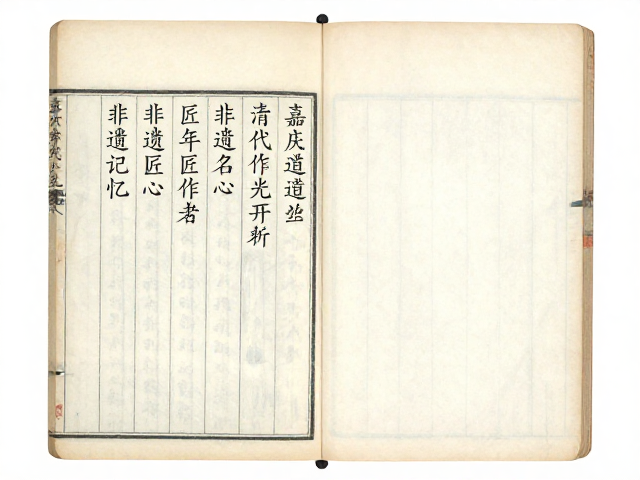 嘉庆道道
清代作光开
非遗名心
匠年匠作者
非遗匠心
非遗记忆